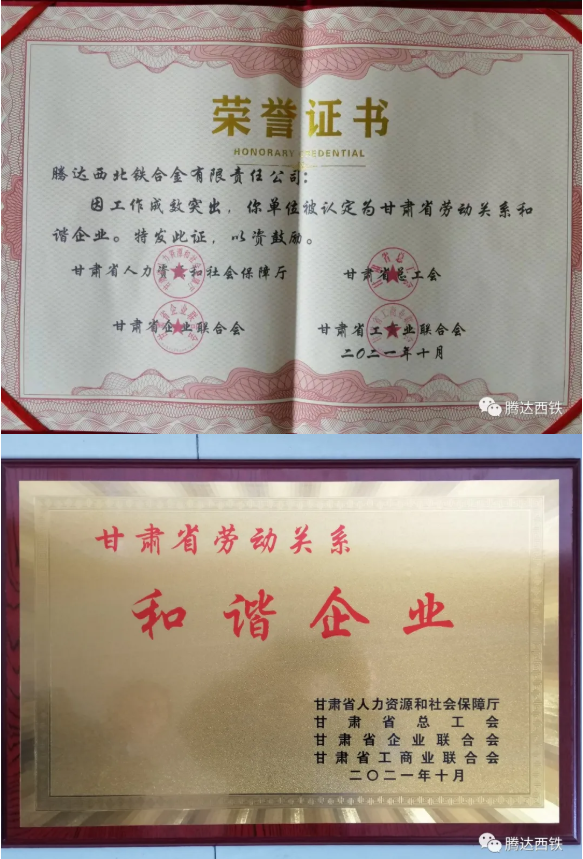 荣誉证书
HONORARY CREDENTIAL
腾达西北铁合金有限责任公司：
因工作成效突出，你单位被认定为甘肃省劳动关系和
谐企业。特发此证，以资鼓励。
甘肃省人力资源和社会保障厅 甘肃省总工会
甘肃省企业联合会 甘肃省工商业联合会
二〇二一年十月
腾达西铁
甘肃省劳动关系
和谐企业
甘肃省人力资源和社会保障厅
甘肃省总工会
甘肃省企业联合会
甘肃省工商业联合会
二〇二一年十月
腾达西铁